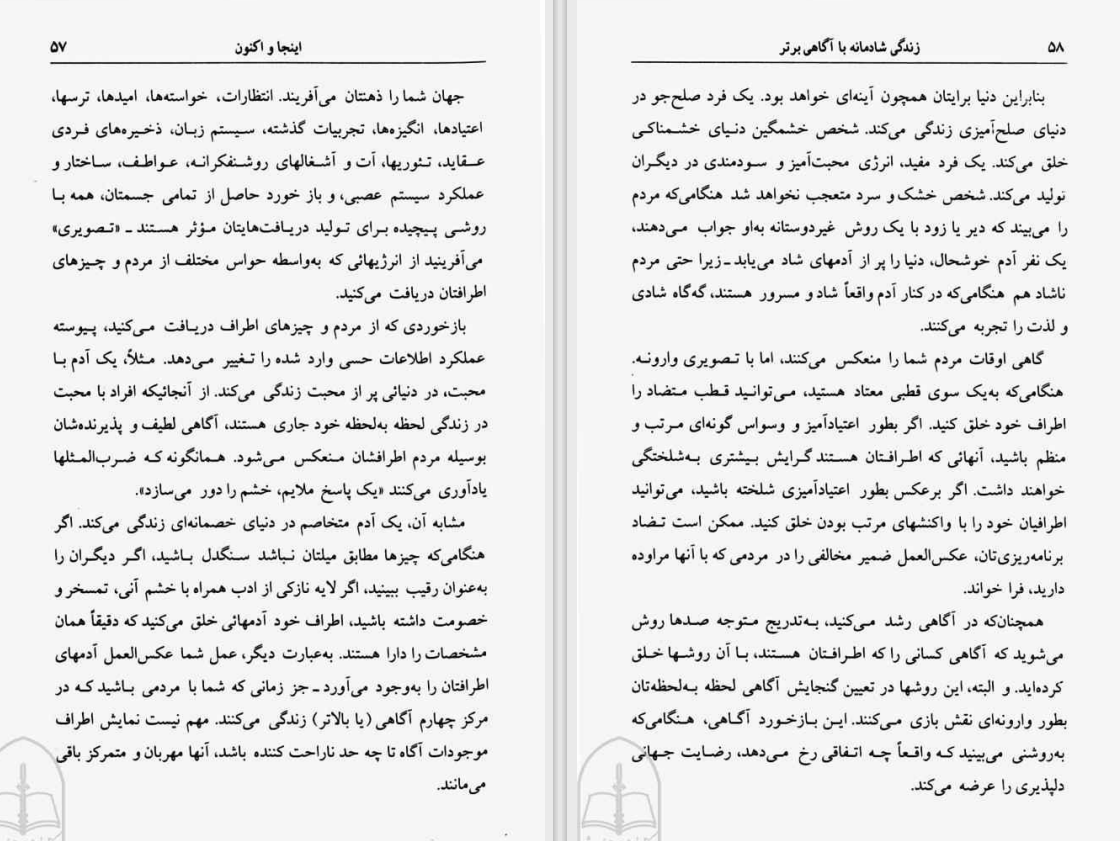 اینجا و اکنون ۵۷
جهان شما را ذهنتان می‌آفریند. انتظارات، خواسته‌ها، امیدها، ترسها،
اعتیادها، انگیزه‌ها، تجربیات گذشته، سیستم زبان، ذخیره‌های فردی
عقاید، تئوریها، آت و آشغالهای روشنفکرانه، عواطف، ساختار و
عملکرد سیستم عصبی، و باز خورد حاصل از تمامی جسمتان، همه با
روشی پیچیده برای تولید دریافت‌هایتان مؤثر هستند ـ «تصویری»
می‌آفرینید از انرژیهائی که به‌واسطه حواس مختلف از مردم و چیزهای
اطرافتان دریافت می‌کنید.
بازخوردی که از مردم و چیزهای اطراف دریافت می‌کنید، پیوسته
عملکرد اطلاعات حسی وارد شده را تغییر می‌دهد. مثلاً، یک آدم با
محبت، در دنیائی پر از محبت زندگی می‌کند. از آنجائیکه افراد با محبت
در زندگی لحظه به‌لحظه خود جاری هستند، آگاهی لطیف و پذیرنده‌شان
بوسیله مردم اطرافشان منعکس می‌شود. همانگونه که ضرب‌المثلها
یادآوری می‌کنند «یک پاسخ ملایم، خشم را دور می‌سازد».
مشابه آن، یک آدم متخاصم در دنیای خصمانه‌ای زندگی می‌کند. اگر
هنگامی‌که چیزها مطابق میلتان نباشد سنگدل باشید، اگر دیگران را
به‌عنوان رقیب ببینید، اگر لایه نازکی از ادب همراه با خشم آنی، تمسخر و
خصومت داشته باشید، اطراف خود آدمهائی خلق می‌کنید که دقیقاً همان
مشخصات را دارا هستند. به‌عبارت دیگر، عمل شما عکس‌العمل آدمهای
اطرافتان را به‌وجود می‌آورد ـ جز زمانی که شما با مردمی باشید که در
مرکز چهارم آگاهی (یا بالاتر) زندگی می‌کنند. مهم نیست نمایش اطراف
موجودات آگاه تا چه حد ناراحت کننده باشد، آنها مهربان و متمرکز باقی
می‌مانند.
۵۸ زندگی شادمانه با آگاهی برتر
بنابراین دنیا برایتان همچون آینه‌ای خواهد بود. یک فرد صلح‌جو در
دنیای صلح‌آمیزی زندگی می‌کند. شخص خشمگین دنیای خشمناکی
خلق می‌کند. یک فرد مفید، انرژی محبت‌آمیز و سودمندی در دیگران
تولید می‌کند. شخص خشک و سرد متعجب نخواهد شد هنگامی‌که مردم
را می‌بیند که دیر یا زود با یک روش غیردوستانه به‌او جواب می‌دهند،
یک نفر آدم خوشحال، دنیا را پر از آدمهای شاد می‌یابد ـ زیرا حتی مردم
ناشاد هم هنگامی‌که در کنار آدم واقعاً شاد و مسرور هستند، گه‌گاه شادی
و لذت را تجربه می‌کنند.
گاهی اوقات مردم شما را منعکس می‌کنند، اما با تصویری وارونه.
هنگامی‌که به‌یک سوی قطبی معتاد هستید، می‌توانید قطب متضاد را
اطراف خود خلق کنید. اگر بطور اعتیادآمیز و وسواس گونه‌ای مرتب و
منظم باشید، آنهائی که اطرافتان هستند گرایش بیشتری به‌شلختگی
خواهند داشت. اگر برعکس بطور اعتیادآمیزی شلخته باشید، می‌توانید
اطرافیان خود را با واکنشهای مرتب بودن خلق کنید. ممکن است تضاد
برنامه‌ریزی‌تان، عکس‌العمل ضمیر مخالفی را در مردمی که با آنها مراوده
دارید، فرا خواند.
همچنان‌که در آگاهی رشد می‌کنید، به‌تدریج متوجه صدها روش
می‌شوید که آگاهی کسانی را که اطرافتان هستند، با آن روشها خلق
کرده‌اید. و البته، این روشها در تعیین گنجایش آگاهی لحظه به‌لحظه‌تان
بطور وارونه‌ای نقش بازی می‌کنند. این بازخورد آگاهی، هنگامی‌که
به‌روشنی می‌بینید که واقعاً چه اتفاقی رخ می‌دهد، رضایت جهانی
دلپذیری را عرضه می‌کند.